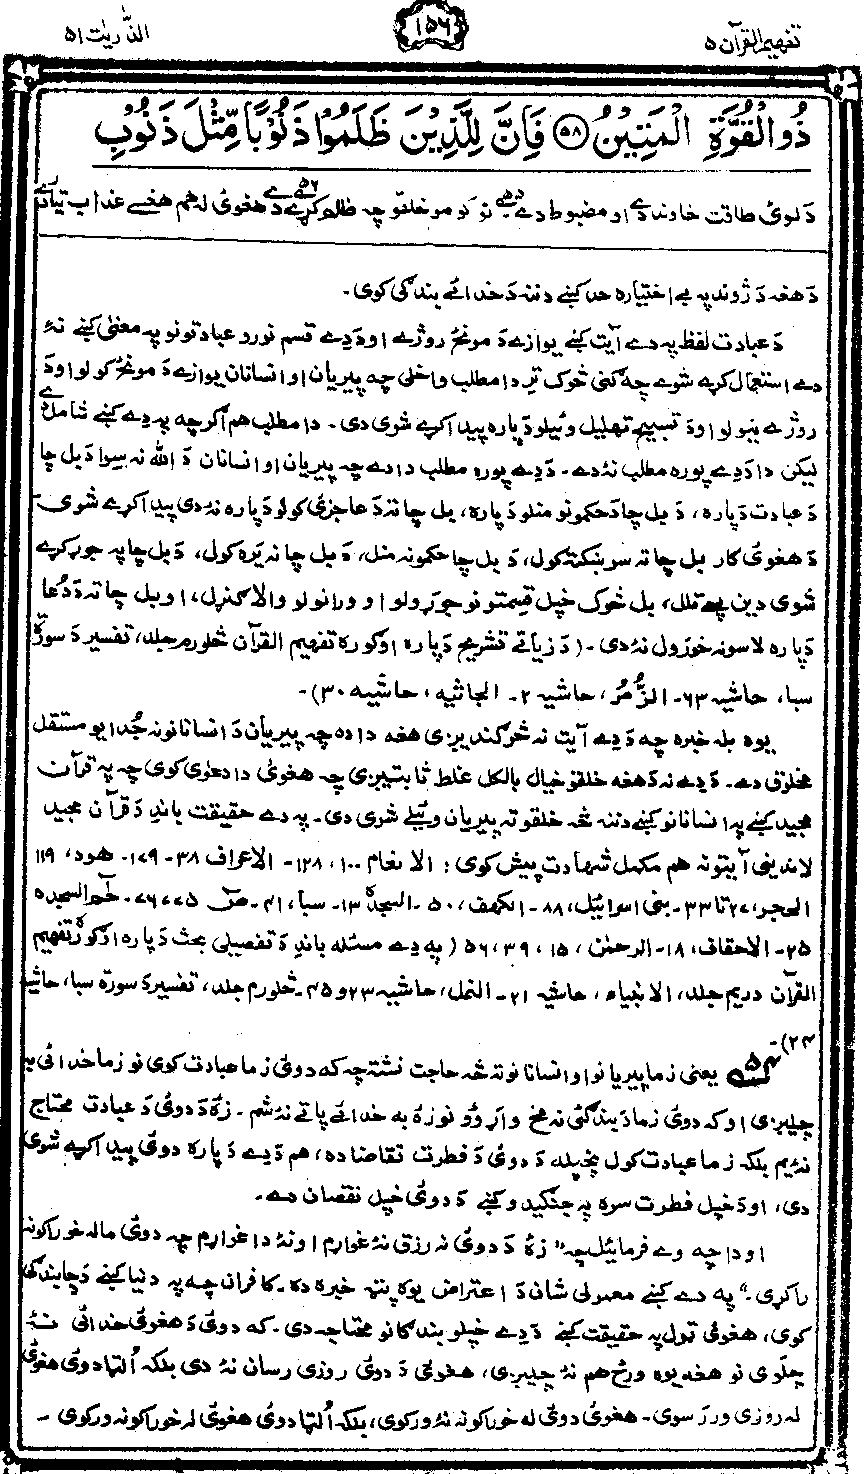 تفهیم القرآن ۵
۱۵۶
الذّٰریٰت ۵۱
ذُو الْقُوَّةِ الْمَتِيْنُ ﴿۵۸﴾ فَاِنَّ لِلَّذِيْنَ ظَلَمُوْا ذَنُوْبًا مِّثْلَ ذَنُوْبِ
دَ لوئ طاقت خاوند دے او مضبوط دے۔ نو کومو خلقو چہ ظلم کړے دَ هغوئ لہ هم هغسے عذاب تیار دے
دَ هغہ دَ ژوند پہ بے اختیارہ حد کښے دننہ دَ خدائے بندګی کوی۔
دَ عبادت لفظ پہ دے آیت کښے یوازے دَ مونځ روژے او دَ دے قسم نورو عبادتونو پہ معنیٰ کښے نۂ
دے استعمال کړے شوے چہ ګنی څوک ترے دا مطلب واخلی چہ پیریان او انسانان یوازے دَ مونځ کولو او دَ
روژے نیولو او دَ تسبیح تهلیل وئیلو دَ پارہ پیدا کړے شوی دی۔ دا مطلب هم اګر چہ پہ دے کښے شامل دے
لیکن دا دَ دے پورہ مطلب نۂ دے۔ دَ دے پورہ مطلب دا دے چہ پیریان او انسانان دَ اللّٰہ نہ سوا دَ بل چا
دَ عبادت دَ پارہ، دَ بل چا دَ حکمونو منلو دَ پارہ، بل چا تہ دَ عاجزئ کولو دَ پارہ نۂ دی پیدا کړے شوی
دَ هغوئ کار بل چا تہ سر ښکتہ کول، دَ بل چا حکمونہ منل، دَ بل چا نہ یرہ کول، دَ بل چا پہ جوړ کړے
شوی دین پسے تلل، بل څوک خپل قسمتونو جوړولو او ورانولو والا ګنړل، او بل چا تہ دَ دُعا
دَ پارہ لاسونہ خورول نۂ دی۔ (دَ زیاتے تشریح دَ پارہ اوګورہ تفهیم القرآن څلورم جلد، تفسیر دَ سورۃ
سبا، حاشیہ ۶۳۔ الزُّمُر، حاشیہ ۲۔ الجاثیہ، حاشیہ ۳۰)۔
یوہ بلہ خبرہ چہ دَ دے آیت نہ څرګندیږی هغہ دا دہ چہ پیریان دَ انسانانو نہ جُدا یو مستقل
مخلوق دے۔ دَ دے نہ دَ هغہ خلقو خیال بالکل غلط ثابتیږی چہ هغوئ دا دعوٰی کوی چہ پہ قرآن
مجید کښے پہ انسانانو کښے دننہ څہ خلقو تہ پیریان وئیلے شوی دی۔ پہ دے حقیقت باندے دَ قرآن مجید
لاندینی آیتونہ هم مکمل شهادت پیش کوی: الانعام ۱۰۰، ۱۲۸۔ الاعراف ۳۸۔ ۱۷۹۔ هود، ۱۱۹
الحجر، ۲۷ تا ۳۳۔ بنی اسرائیل، ۸۸۔ الکهف، ۵۰۔ السجدۃ ۱۳۔ سبا، ۴۱۔ صٓ ۷۵، ۷۶۔ حٰمٓ السجدہ
۲۵۔ الاحقاف، ۱۸۔ الرحمٰن، ۱۵، ۳۹، ۵۶ (پہ دے مسئلہ باندے دَ تفصیلی بحث دَ پارہ اوګورہ تفهیم
القرآن دریم جلد، الانبیاء، حاشیہ ۲۱۔ النمل، حاشیہ ۲۳ و ۴۵۔ څلورم جلد، تفسیر دَ سورۃ سبا، حاشیہ
۲۴)۔
یعنی زما پیریانو او انسانانو تہ څہ حاجت نشتہ چہ کہ دوئ زما عبادت کوی نو زما خدائی بہ
چلیږی او کہ دوئ زما دَ بندګئ نہ مخ واړوو نو زۂ بہ خدائے پاتے نۂ شم۔ زۂ دَ دوئ دَ عبادت محتاج
نۂ یم بلکہ زما عبادت کول پخپلہ دَ دوئ دَ فطرت تقاضا دہ، هم دَ دے دَ پارہ دوئ پیدا کړے شوی
دی، او دَ خپل فطرت سرہ پہ جنګیدو کښے دَ دوئ خپل نقصان دے۔
او دا چہ وے فرمائیل چہ "زۂ دَ دوئ نہ رزق نۂ غوارم او نۂ دا غوارم چہ دوئ مالہ خوراکونہ
راکړی۔" پہ دے کښے معمولی شان دَ اعتراض یوہ پټہ خبرہ دہ۔ کافران چہ پہ دنیا کښے دَ چا بندګی
کوی، هغوئ ټول پہ حقیقت کښے دَ دے خپلو بندګانو محتاجہ دی۔ کہ دوئ دَ هغوئ خدائی نۂ
چلوی نو هغہ یوہ ورځ هم نۂ چلیږی، هغوئ دَ دوئ روزی رسان نۂ دی بلکہ اُلټا دوئ هغوئ
لہ روزی ور رسوی۔ هغوئ دوئ لہ خوراکونہ نۂ ورکوی، بلکہ اُلټا دوئ هغوئ لہ خوراکونہ ورکوی۔